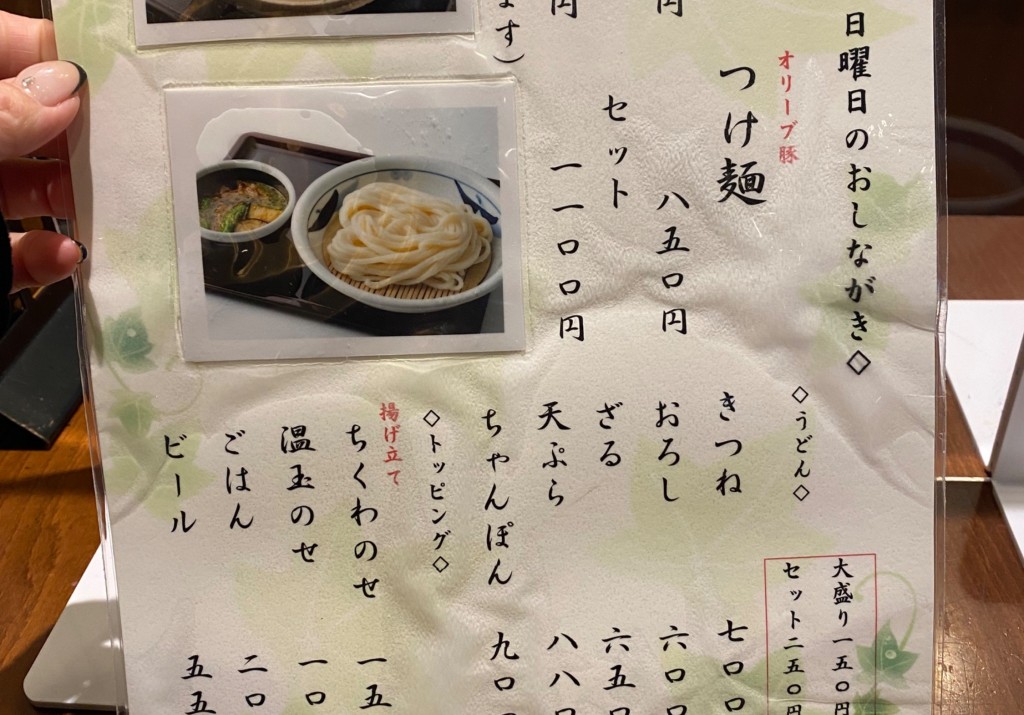 日曜日のおしながき◇
オリーブ豚
つけ麺
八五〇円
セット
一一〇〇円
円
円
ます）
◇うどん◇
大盛り一五〇円
セット二五〇円
きつね
七〇〇
おろし
六〇〇
ざる
六五〇
天ぷら
八八〇
ちゃんぽん
九〇
◇トッピング◇
揚げ立て
ちくわのせ
一五
温玉のせ
一〇
ごはん
二〇
ビール
五五